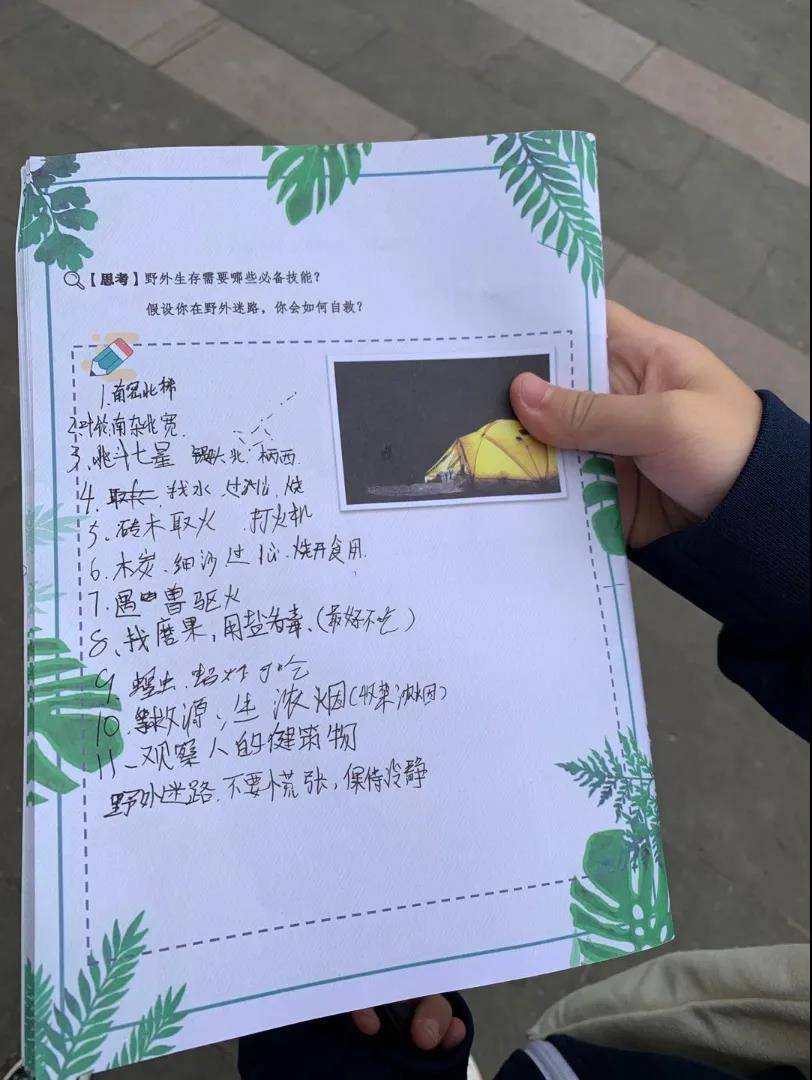 【思考】野外生存需要哪些必备技能？
假设你在野外迷路，你会如何自救？
1.南密北稀
2.叶 南杂北宽
3、北斗七星 头北 柄西
4. 找水 过 烧
5、砖木取火 打火机
6、木炭、细沙过 烧开食用
7、遇 兽驱火
8、找磨果，用盐 毒、（最好不吃）
9、蝗虫、 可吃
10、 救源、生 浓烟（ 浓烟）
11、观察人的健筑物
野外迷路、不要慌张，保待冷静